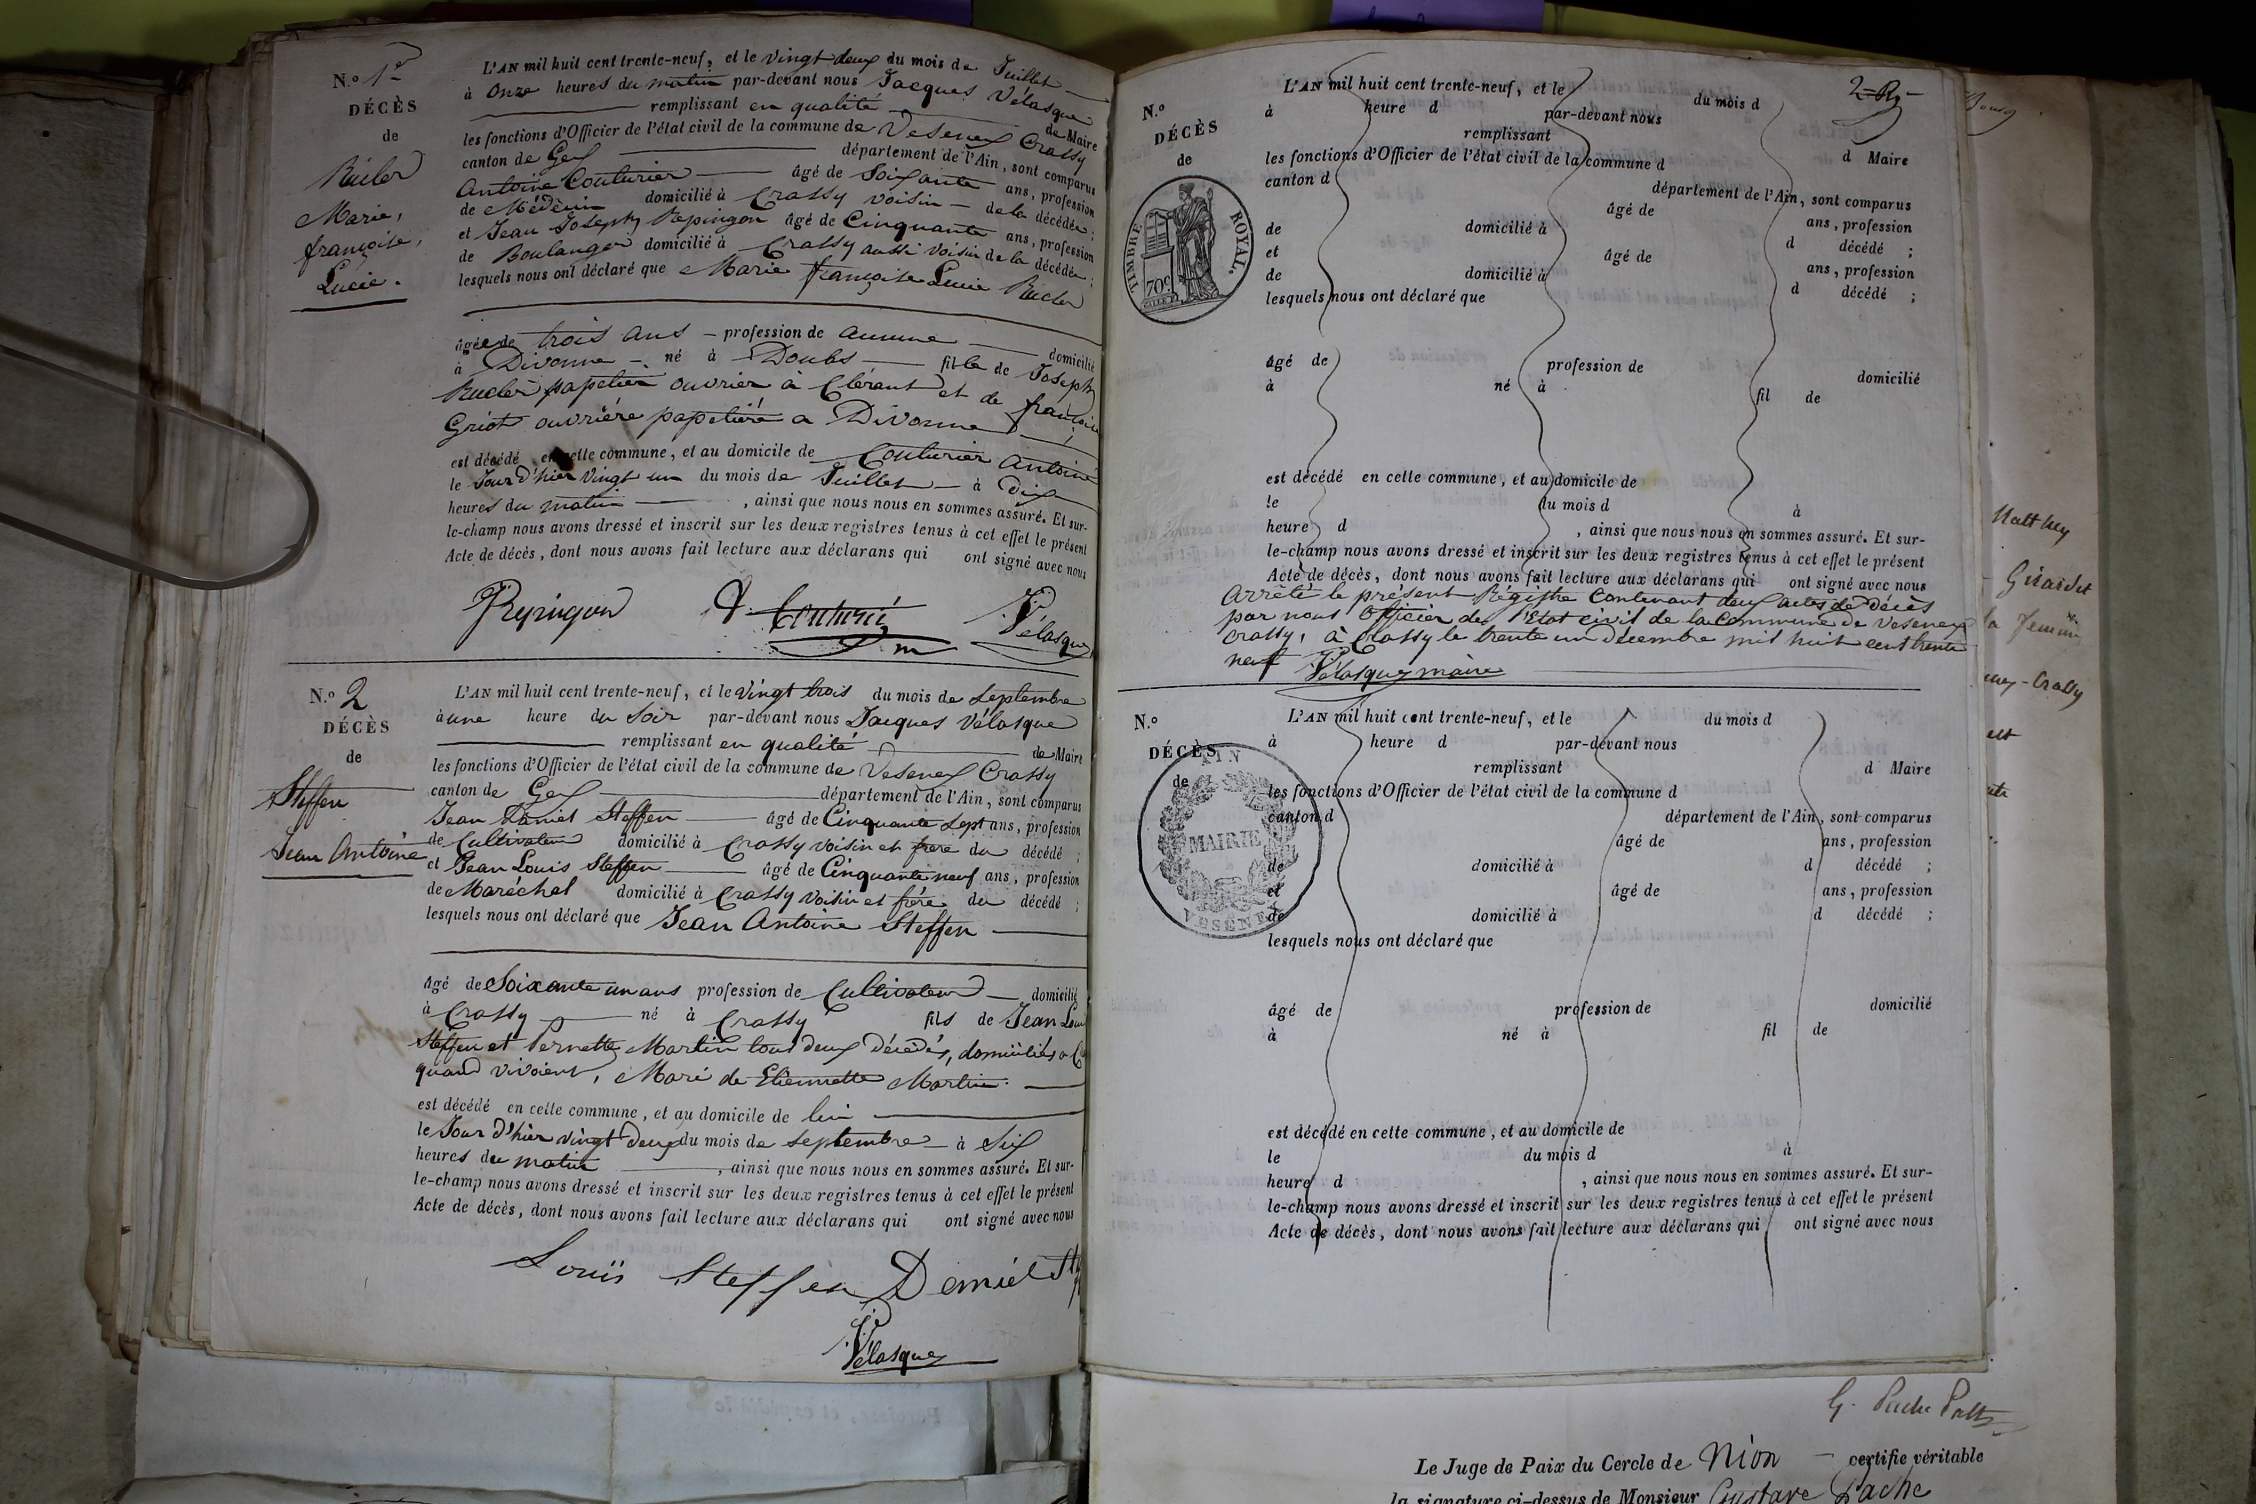 N.º 1er
DÉCÈS
de
Rucler
Marie,
françoise,
Lucie.
L'AN mil huit cent trente-neuf, et le vingt deux du mois de Juillet
à onze heures du matin par-devant nous Jacques Vélasque
remplissant en qualité de Maire
les fonctions d'Officier de l'état civil de la commune de Vesenex Crassy
canton de Gex département de l'Ain, sont comparus
Antoine Couturier âgé de soixante ans, profession
de Médecin domicilié à Crassy voisin de la décédée ;
et Jean Joseph Repingon âgé de Cinquante ans, profession
de Boulanger domicilié à Crassy aussi voisin de la décédée ;
lesquels nous ont déclaré que Marie françoise Lucie Rucler
âgée de trois ans profession de aucune domicilié
à Divonne né à Doubs fille de Joseph
Rucler papetier ouvrier à Clérant et de françoise
Griot ouvrière papetière a Divonne
est décédé en cette commune, et au domicile de Couturier Antoine
le Jour d'hier vingt un du mois de Juillet à Dix
heures du matin , ainsi que nous nous en sommes assuré. Et sur-
le-champ nous avons dressé et inscrit sur les deux registres tenus à cet effet le présent
Acte de décès, dont nous avons fait lecture aux déclarans qui ont signé avec nous
Repingon A. Couturié Vélasque
N.º 2
DÉCÈS
de
Steffen
Jean Antoine
L'AN mil huit cent trente-neuf, et le vingt trois du mois de septembre
à une heure du soir par-devant nous Jacques Vélasque
remplissant en qualité de Maire
les fonctions d'Officier de l'état civil de la commune de Vesenex Crassy
canton de Gex département de l'Ain, sont comparus
Jean Daniel Steffen âgé de Cinquante sept ans, profession
de Cultivateur domicilié à Crassy voisin et frere du décédé ;
et Jean Louis Steffen âgé de Cinquante neuf ans, profession
de Maréchal domicilié à Crassy voisin et frére du décédé ;
lesquels nous ont déclaré que Jean Antoine Steffen
âgé de Soixante un ans profession de Cultivateur domicilié
à Crassy né à Crassy fils de Jean Loui
Steffen et Pernette Martin tout deux décédés, domiciliés a
quand vivoient, Marié de Etiennette Martin.
est décédé en cette commune, et au domicile de lui
le Jour d'hier vingt Deux du mois de septembre à Six
heures du matin , ainsi que nous nous en sommes assuré. Et sur-
le-champ nous avons dressé et inscrit sur les deux registres tenus à cet effet le présent
Acte de décès, dont nous avons fait lecture aux déclarans qui ont signé avec nous
Louis Steffen Daniel
Vélasque
N.º
DÉCÈS
de
TIMBRE ROYAL.
70c
L'AN mil huit cent trente-neuf, et le du mois d
à heure d par-devant nous
remplissant d Maire
les fonctions d'Officier de l'état civil de la commune d
canton d département de l'Ain, sont comparus
âgé de ans, profession
de domicilié à d décédé ;
et âgé de ans, profession
de domicilié à d décédé ;
lesquels nous ont déclaré que
âgé de profession de domicilié
à né à fil de
est décédé en cette commune, et au domicile de
le du mois d à
heure d , ainsi que nous nous en sommes assuré. Et sur-
le-champ nous avons dressé et inscrit sur les deux registres tenus à cet effet le présent
Acte de décès, dont nous avons fait lecture aux déclarans qui ont signé avec nous
Arrêté le présent Régistre contenant deux actes de Décès
par nous Officier de l'Etat civil de la Commune de Vesenex
Crassy, à Crassy le trente un décembre mil huit cent trente
neuf Vélasque maire
N.º
DÉCÈS
de
AIN
MAIRIE
VESENEX
L'AN mil huit cent trente-neuf, et le du mois d
à heure d par-devant nous
remplissant d Maire
les fonctions d'Officier de l'état civil de la commune d
canton d département de l'Ain, sont comparus
âgé de ans, profession
de domicilié à d décédé ;
et âgé de ans, profession
de domicilié à d décédé ;
lesquels nous ont déclaré que
âgé de profession de domicilié
à né à fil de
est décédé en cette commune, et au domicile de
le du mois d à
heure d , ainsi que nous nous en sommes assuré. Et sur-
le-champ nous avons dressé et inscrit sur les deux registres tenus à cet effet le présent
Acte de décès, dont nous avons fait lecture aux déclarans qui ont signé avec nous
Matthey
Girardet
la femme
Crassy
Le Juge de Paix du Cercle de Nion certifie véritable
la signature ci-dessus de Monsieur Gustave Pache